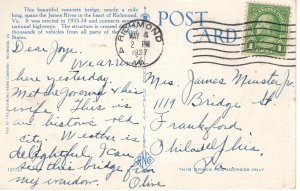 This beautiful concrete bridge, nearly a mile
long, spans the James River in the heart of Richmond,
Va. It was erected in 1933-34 and connects
national highways. The structure is crossed
thousands of vehicles from all parts of the
States.
Dear Joye.
We arrived
here yesterday.
Met the Governor & his
wife. This is
an historic old
city. Weather is
delightful. I can
see this bridge from
my window. Olive
POST
CARD
RICHMOND
MAY 4
2 PM
1937
VA.
Mrs. James Minster Jr.
1119 Bridge St
Frankford
Philadelphia
THIS SPACE FOR ADDRESS ONLY